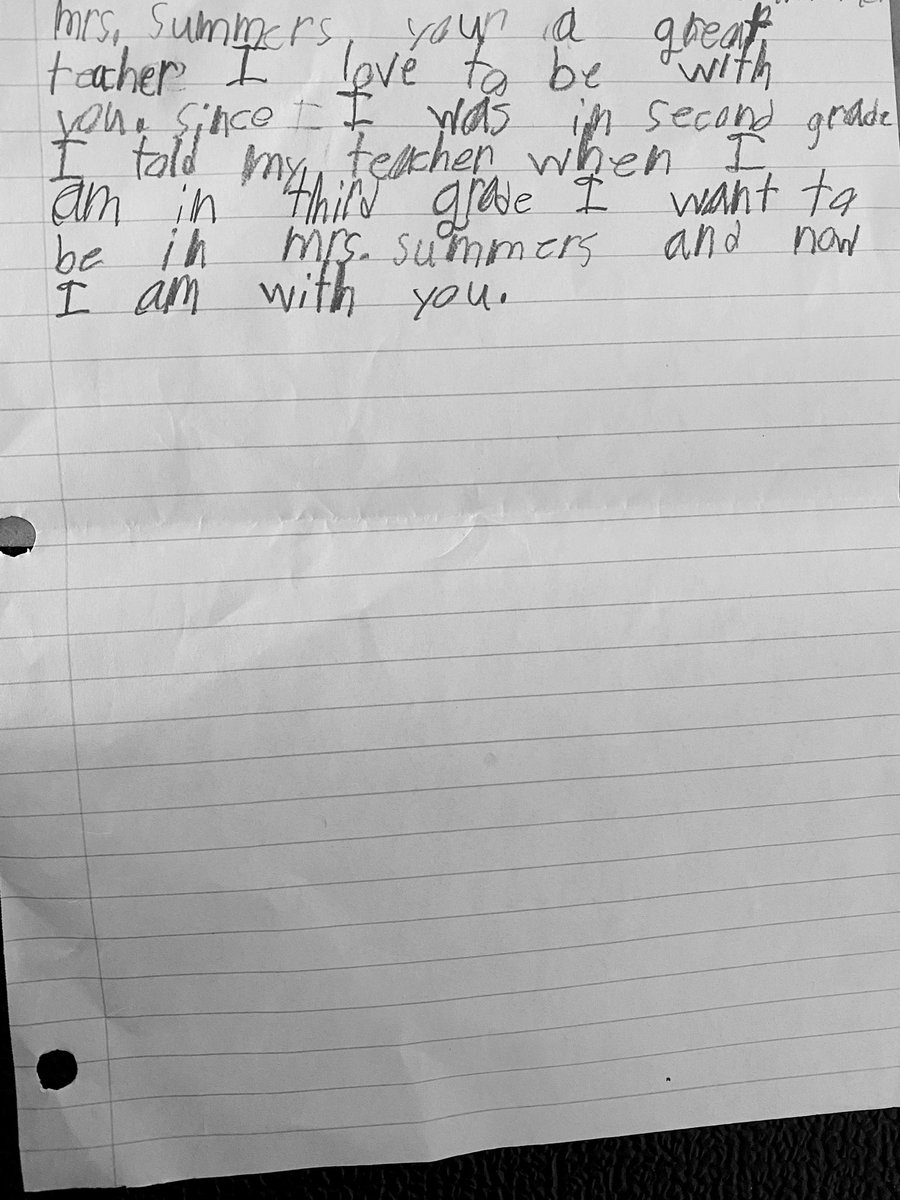 mrs. summers. your a great
teacher I love to be with
you. since I was in second grade
I told my teacher when I
am in third grade I want to
be in mrs. summers and now
I am with you.